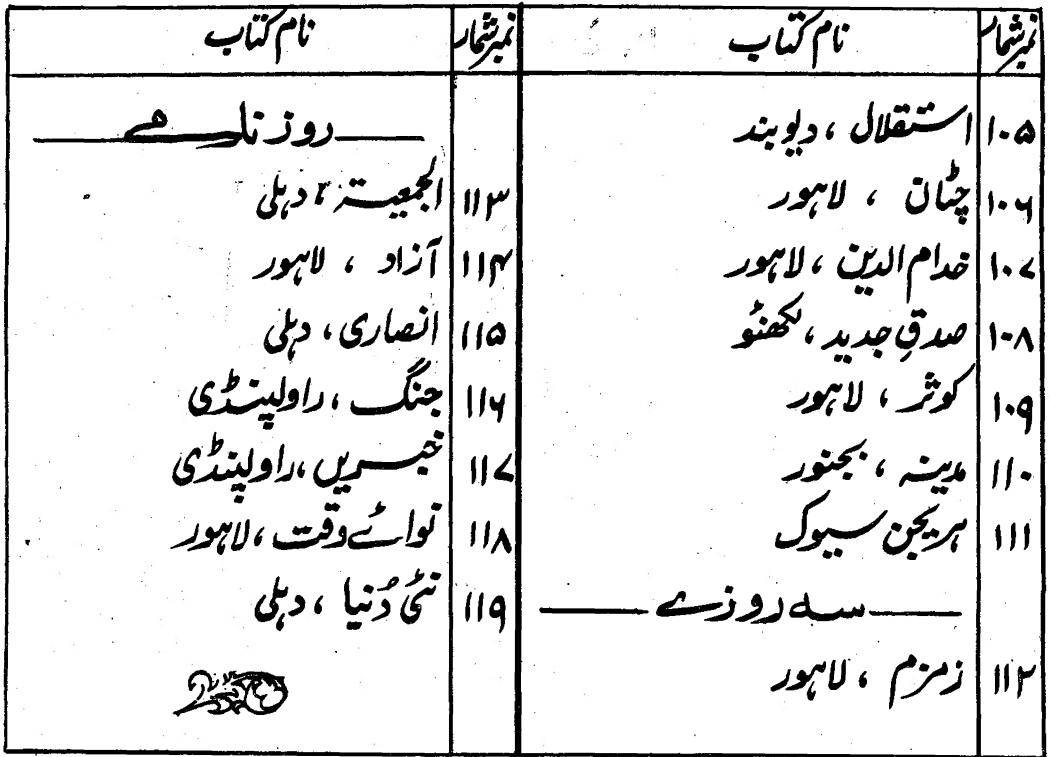 نمبر شمار نام کتاب
۱۰۵ استقلال ، دیوبند
۱۰۶ چٹان ، لاہور
۱۰۷ خدام الدین ، لاہور
۱۰۸ صدقِ جدید ، لکھنؤ
۱۰۹ کوثر ، لاہور
۱۱۰ مدینہ ، بجنور
۱۱۱ ہریجن سیوک
سہ روزے
۱۱۲ زمزم ، لاہور
نمبر شمار نام کتاب
روزنامے
۱۱۳ الجمعیۃ ، دہلی
۱۱۴ آزاد ، لاہور
۱۱۵ انصاری ، دہلی
۱۱۶ جنگ ، راولپنڈی
۱۱۷ خبریں ، راولپنڈی
۱۱۸ نوائے وقت ، لاہور
۱۱۹ نئی دُنیا ، دہلی